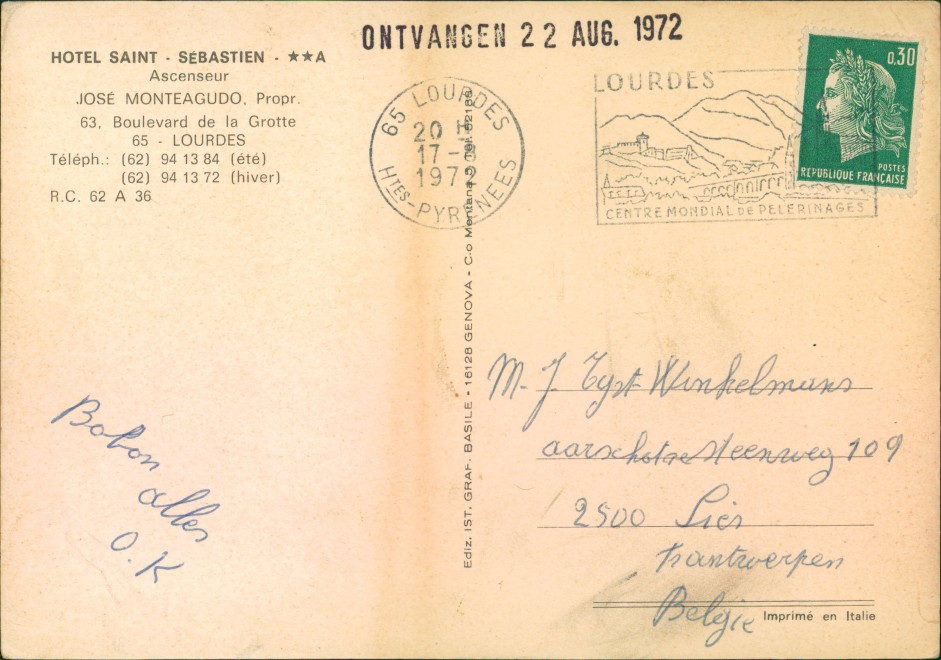 HOTEL SAINT - SÉBASTIEN - ★★A
Ascenseur
JOSÉ MONTEAGUDO, Propr.
63, Boulevard de la Grotte
65 - LOURDES
Téléph.: (62) 94 13 84 (été)
(62) 94 13 72 (hiver)
R.C. 62 A 36
ONTVANGEN 22 AUG. 1972
65 LOURDES
20 H
17-8
1972
HTES-PYRENEES
LOURDES
CENTRE MONDIAL DE PELERINAGES
0,30
POSTES
REPUBLIQUE FRANÇAISE
Ediz. IST. GRAF. BASILE - 16128 GENOVA - C.o Montana
Bobon
alles
O.K
M. J Tyst Winkelmans
aarschotse steenweg 109
2500 Lier
Antwerpen
Belgie
Imprimé en Italie